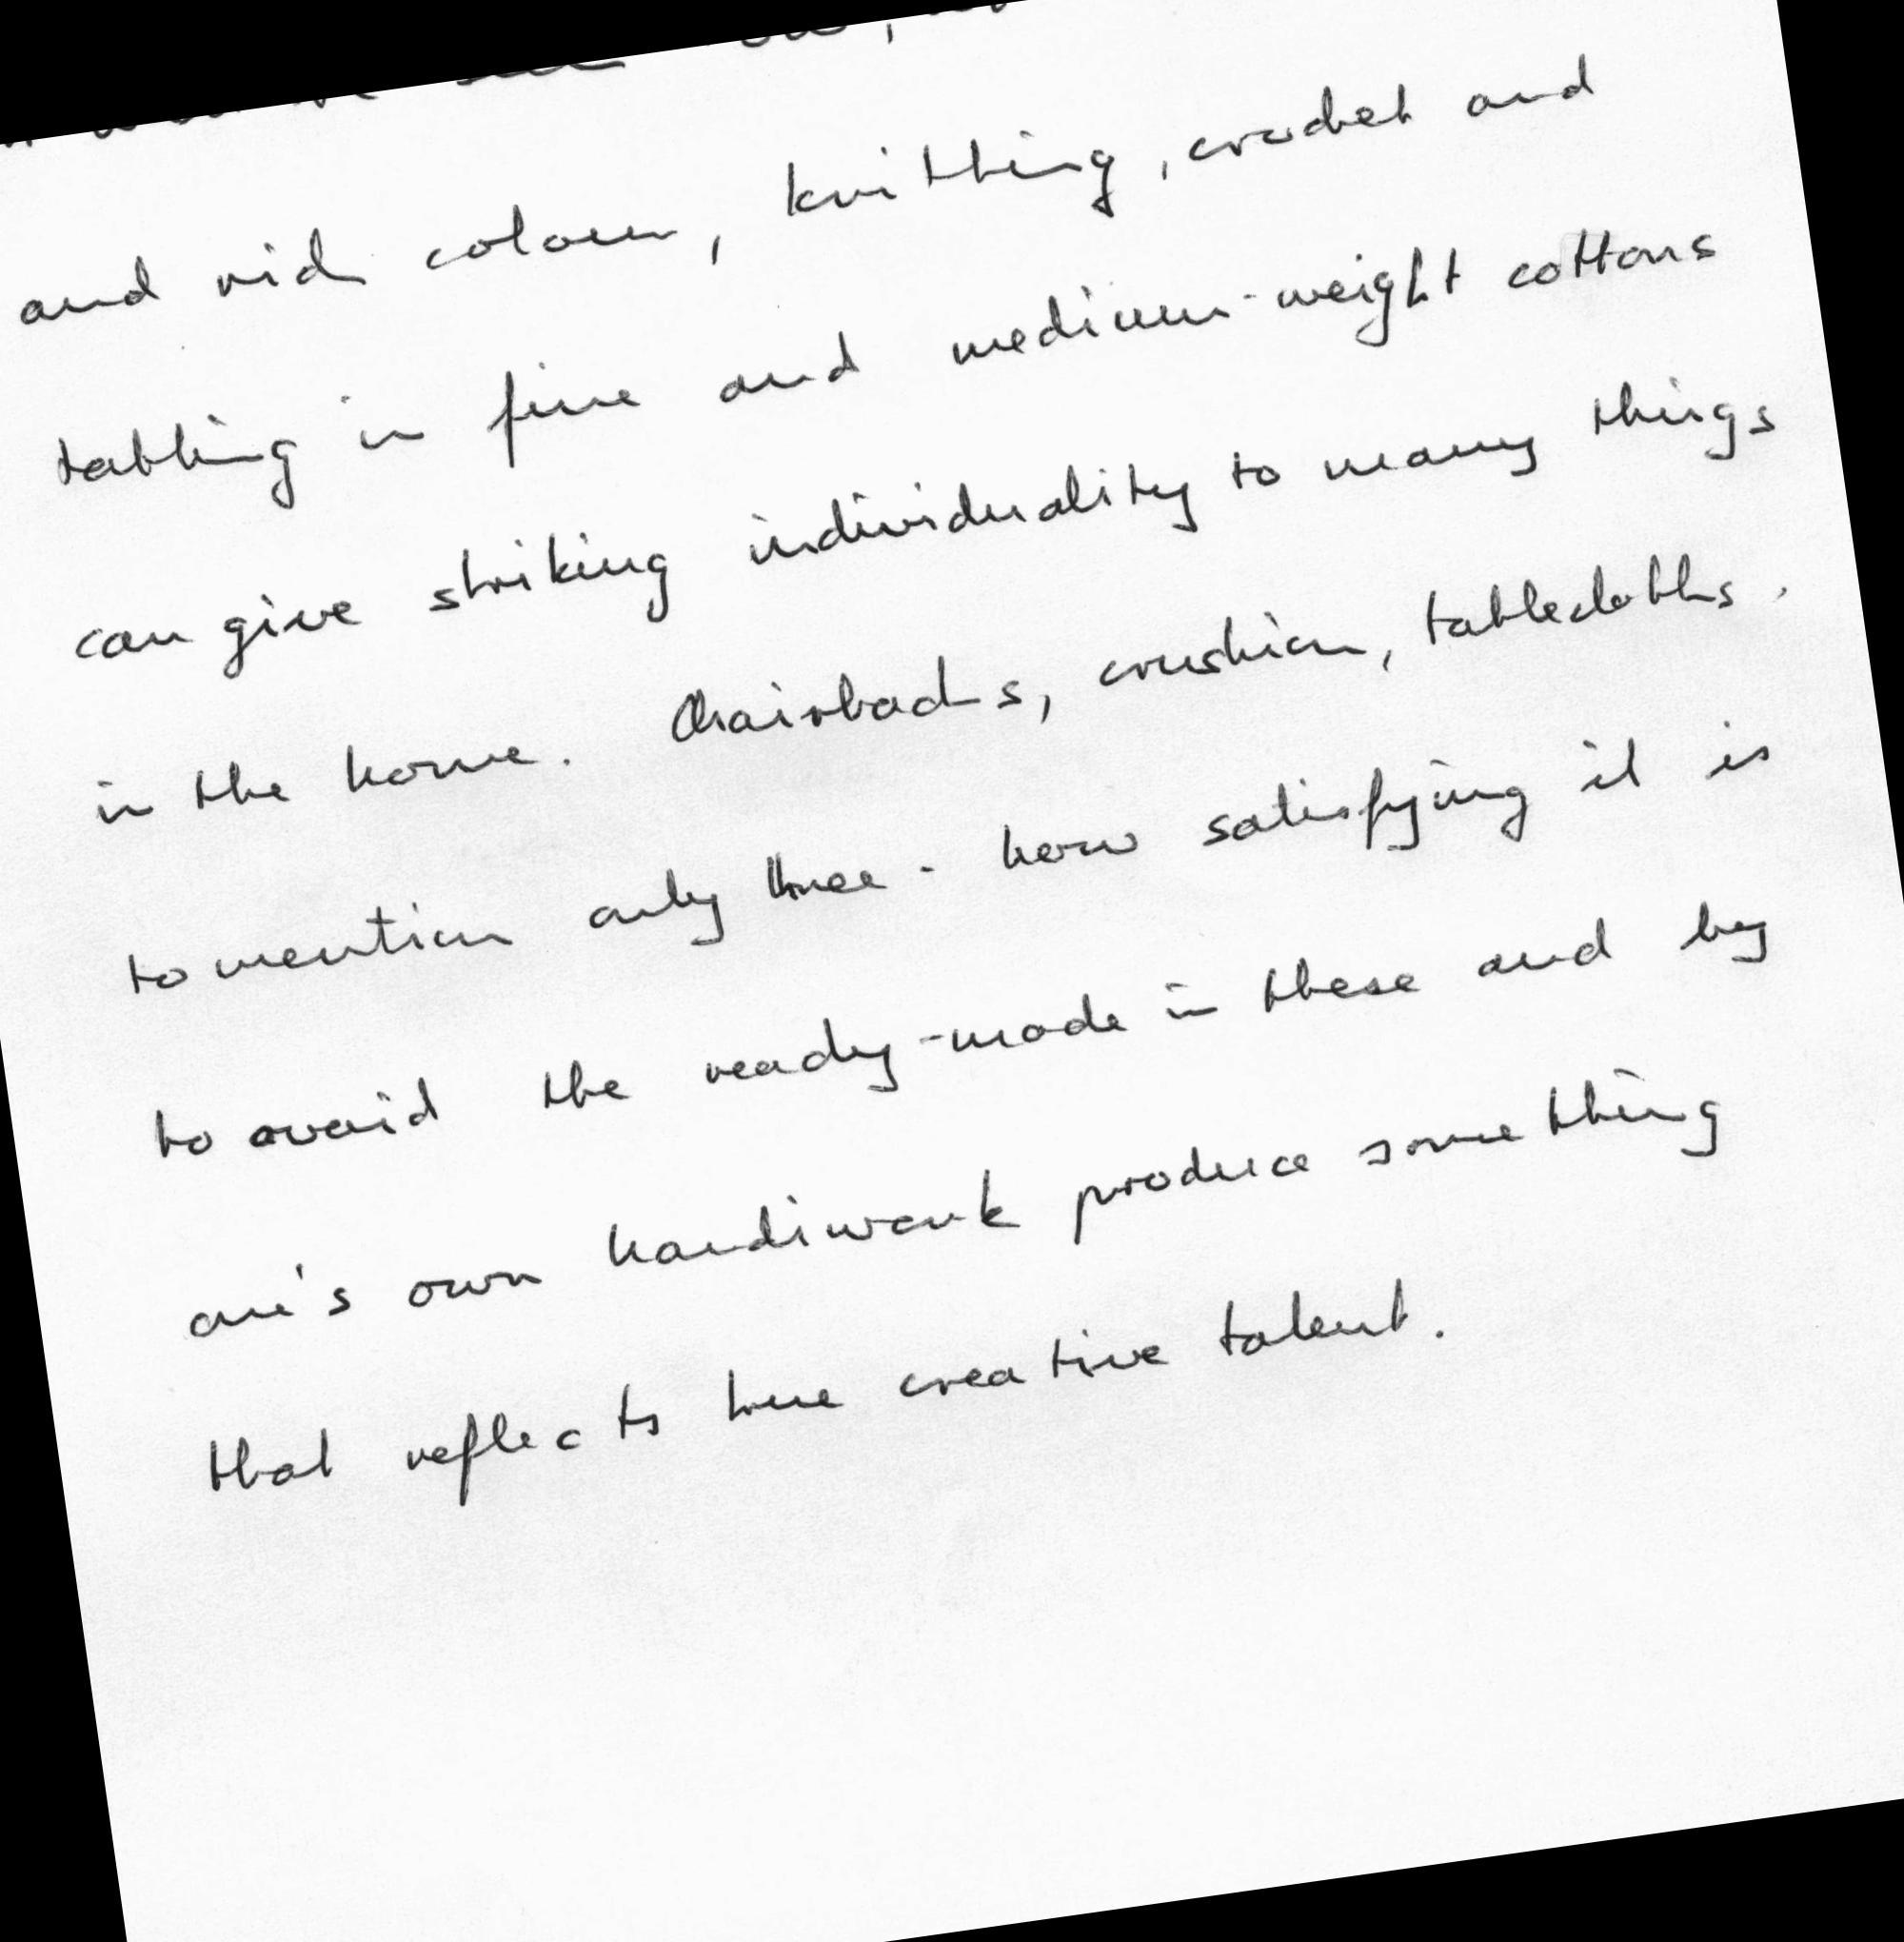 and rich colour, knitting, crochet and
tatting in fine and medium-weight cottons
can give striking individuality to many things
in the home. Chairbacks, crushion, tablecloths,
to mention only three - how satisfying it is
to avoid the ready-made in these and by
one's own handiwork produce something
that reflects true creative talent.